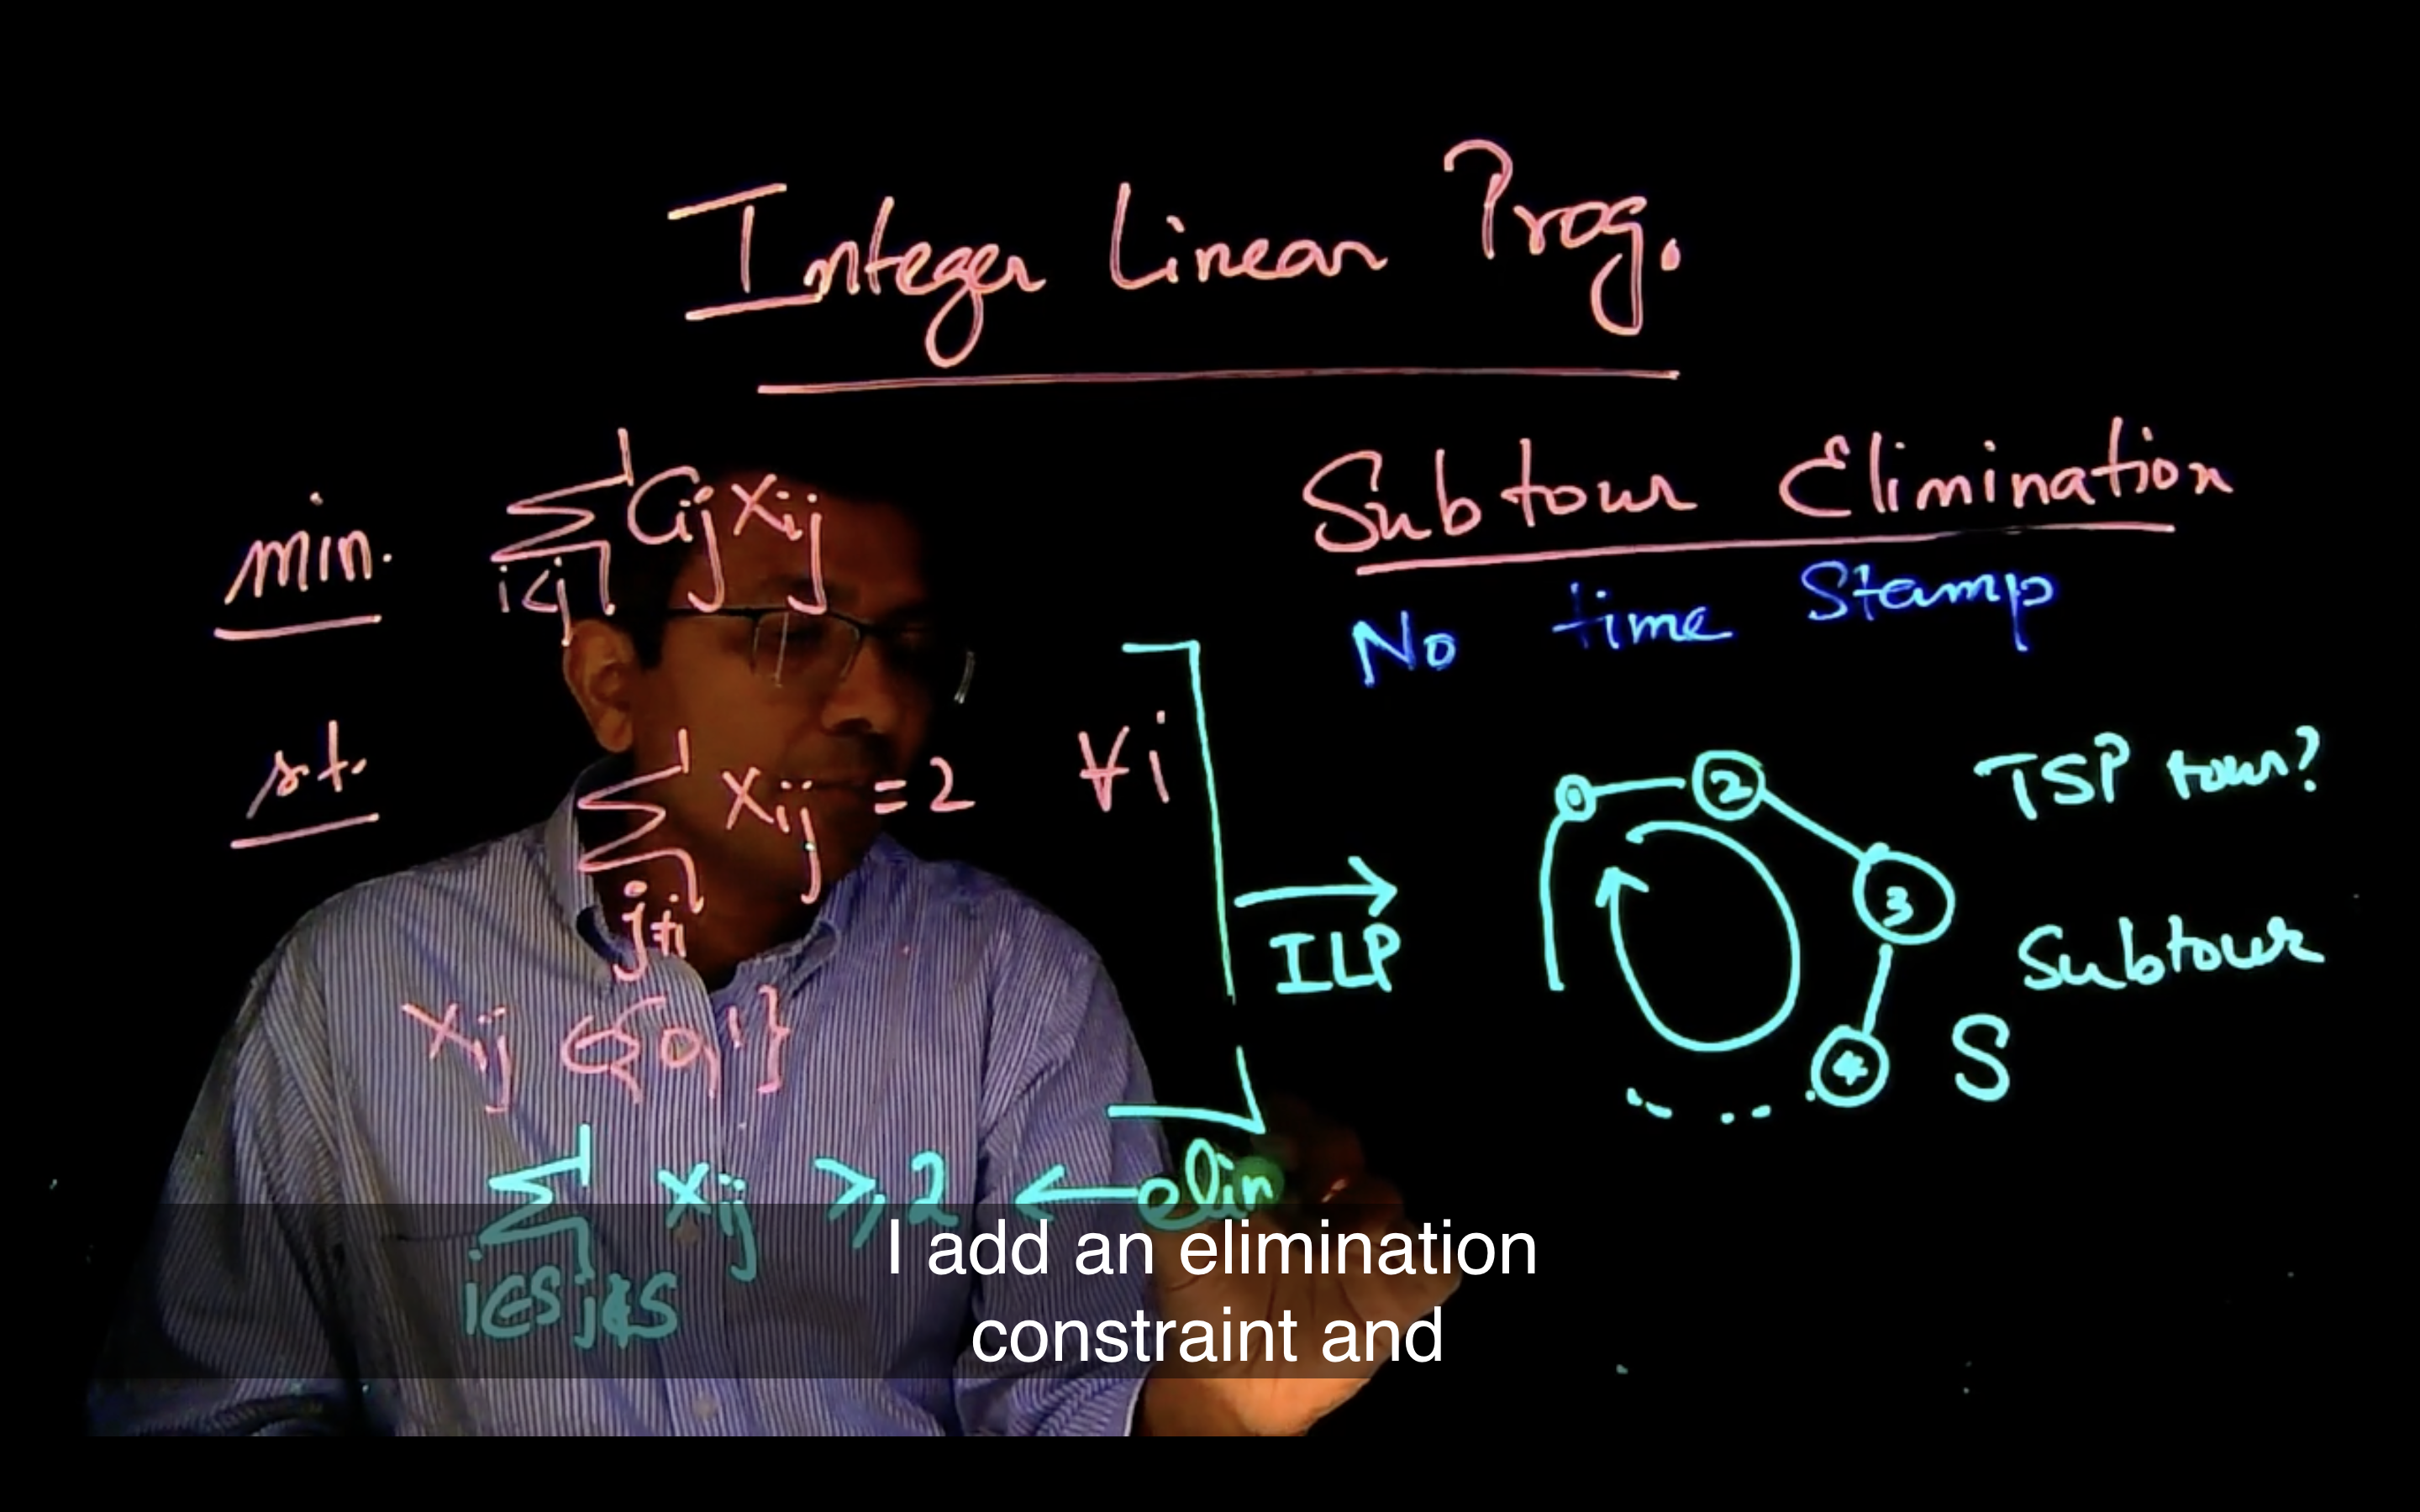 Integer Linear Prog.
min. Σ Cij xij
i<j
s.t. Σ xij = 2 ∀i
j≠i
xij ∈ {0,1}
Σ xij ≥ 2 ← elin
i∈S j∉S
Subtour Elimination
No time Stamp
ILP
2
3
4
TSP tour?
Subtour
S
I add an elimination
constraint and